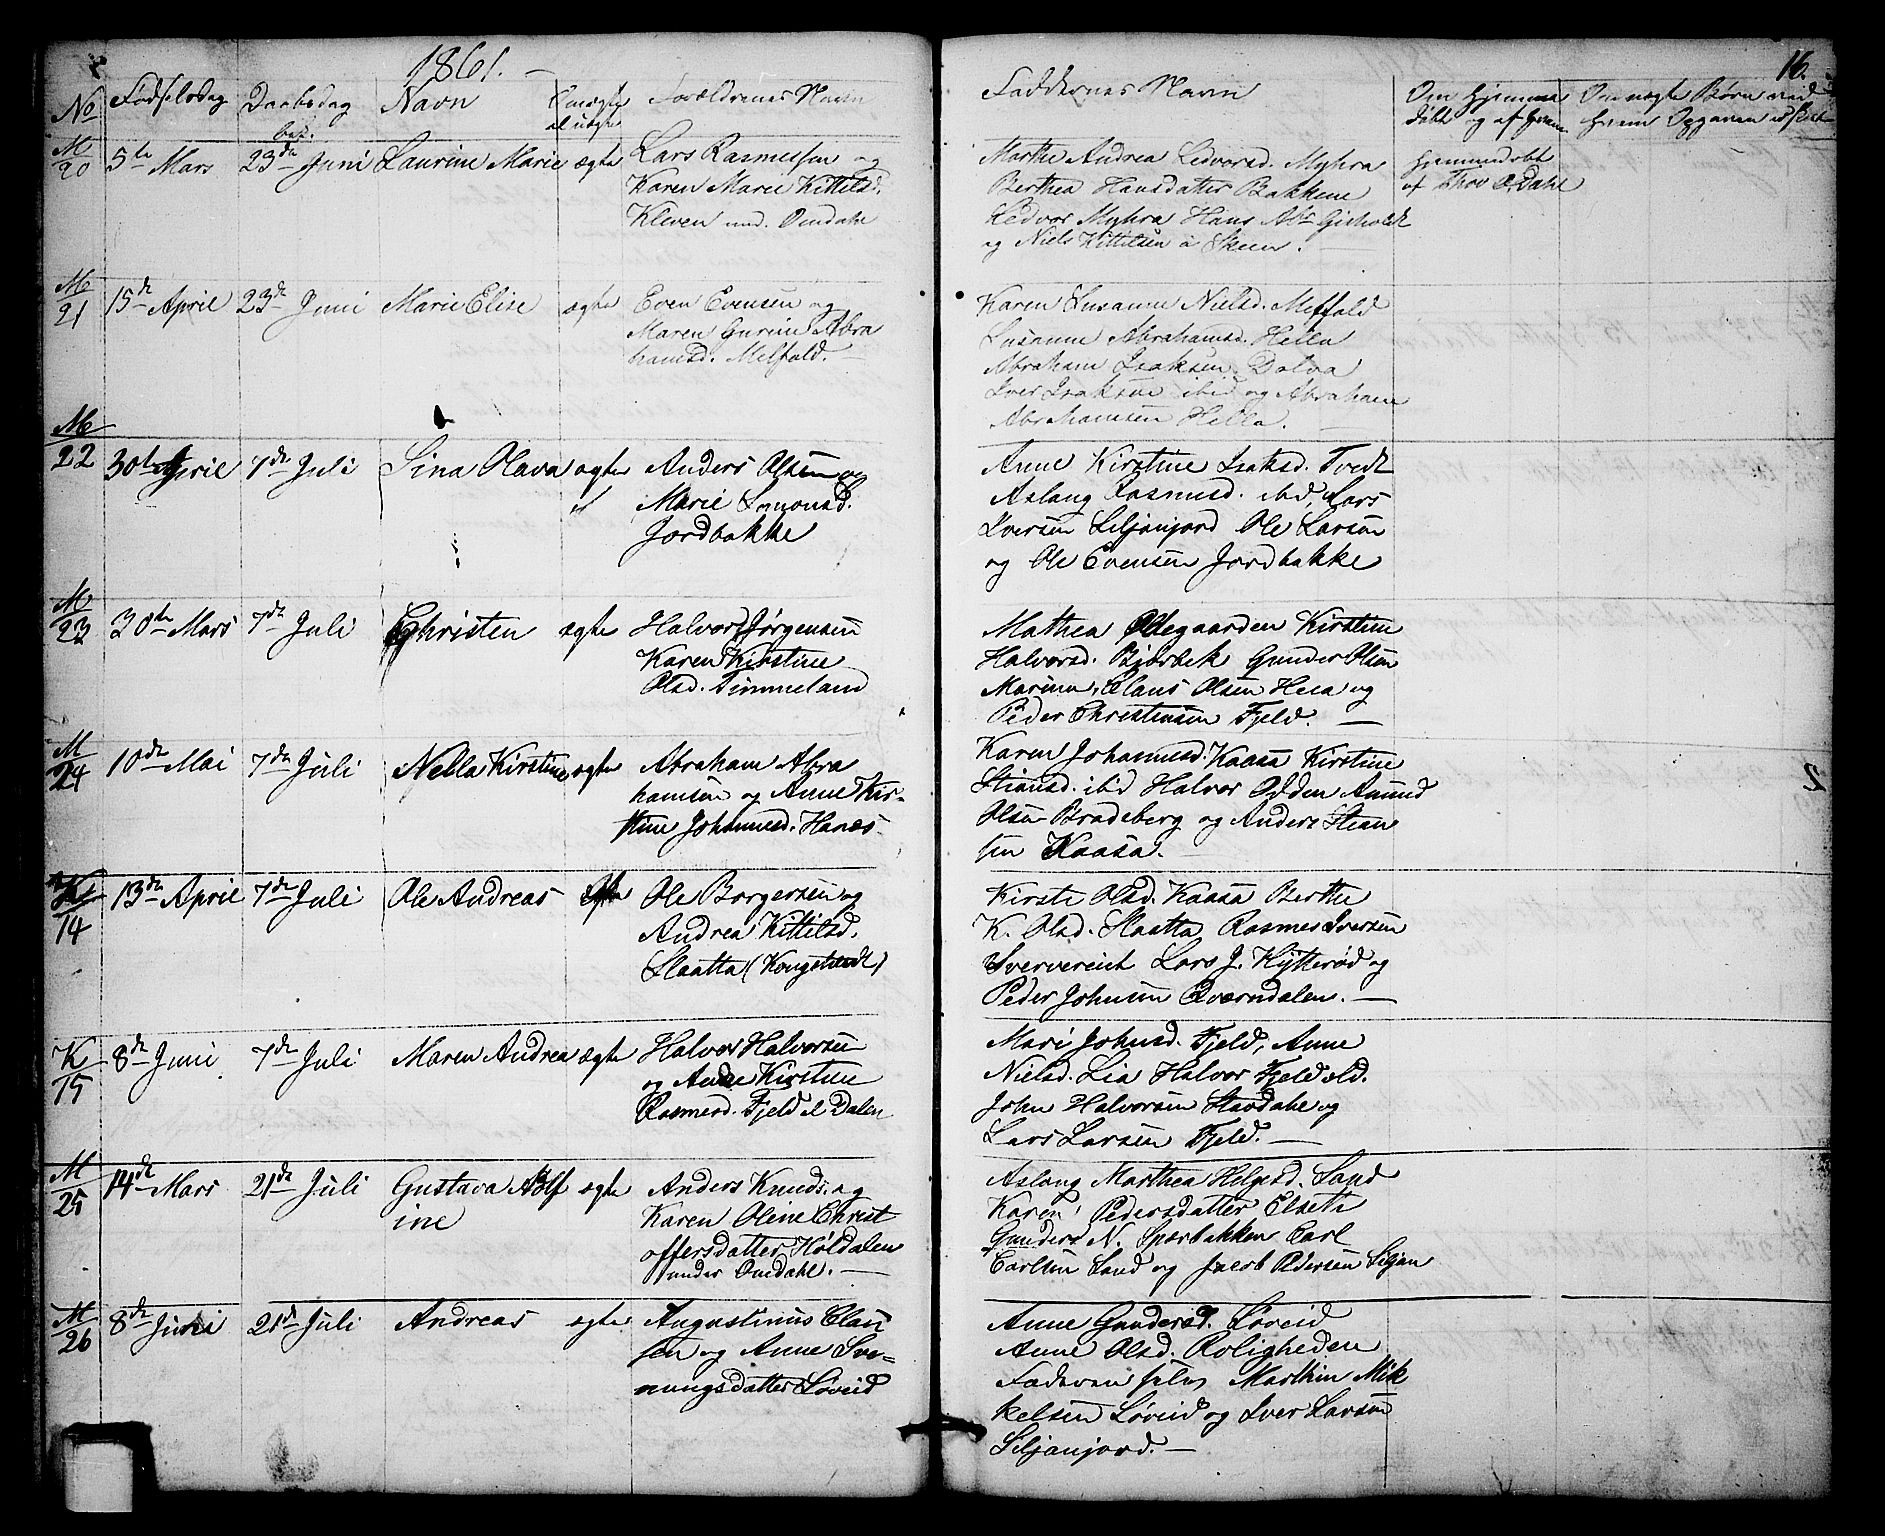 1861.
16.
No
Fødselsdag
Daabsdag
Navn
Om ægte
el uægte
Forældrenes Navn
Faddernes Navn
Om hjemme
døbt og af hvem
Om uægte Børn med
hvem Opgaven
M
20
5te Mars
bek.
23de Juni
Laurine Marie
ægte
Lars Rasmussen og
Karen Marie Kittilsd.
Kleven und. Omdahl
Marthe Andrea Ledvorsd. Myhra
Berthea Hansdatter Bakkene
Ledvor Myhra Hans Abr Gisholdt
og Niels Kittilsen a Skeen.
hjemmedøbt
af Thov O. Dahl
M
21
15de April
23de Juni
Marie Elise
ægte
Even Evensen og
Maren Gurine Abra
hamsd. Melfald.
Karen Susanne Nielsd. Melfald
Susanne Abrahamsd. Hella
Abraham Isaksen Dolva
Iver Isaksen ibid og Abraham
Abrahamsen Hella.
M
22
30te April
7de Juli
Sina Olava
ægte
Anders Olsen og
Marie Simonsd.
Jordbakke
Anne Kirstine Isaksd. Tvedt
Aslaug Rasmusd. ibid, Lars
Iversen Siljanjord Ole Larsen
og Ole Evensen Jordbakke
M
23
30te Mars
7de Juli
Christen
ægte
Halvor Jørgensen
Karen Kirstine
Olsd. Timmeland
Mathea Ødegaarden Kirstine
Halvorsd. Bjørbek Gunder Olsen
Clans Olsen Heia og
Peder Christensen Fjeld. —
M
24
10de Mai
7de Juli
Nella Kirstine
ægte
Abraham Abra
hamsen og Anne Kir-
stine Johannesd. Hanæs
Karen Johannesd. Kaasa Kirstine
Stiansd. ibid Halvor Odden Amund
Olsen Bradeberg og Anders Stian
sen Kaasa.
K
14
13de April
7de Juli
Ole Andreas
Ægte
Ole Borgersen og
Andrea Kittilsd.
Slaatta (Kongstveidt)
Kirsti Olsd. Kaasa Berthe
K. Olsd. Slaatta Rasmus Iversen
Lars J. Kytterød og
Peder Johnsen Qværndalen. —
K
15
8de Juni
7de Juli
Maren Andrea
ægte
Halvor Halvorsen
og Anne Kirstine
Rasmusd. Fjeld el Dalen
Mari Johnsd. Fjeld, Anne
Nielsd. Lia Halvor Fjeld old.
John Halvorsen Stavdahl og
Lars Larsen Fjeld. —
M
25
14de Mars
21de Juli
Gustava Adolf
ine
ægte
Anders Knuds. og
Karen Oline Christ
offersdatter Høldalen
under Omdahl. —
Aslaug Marthea Helgesd. Sand
Karen Pedersdatter Elseth
Gunders N. Sparbakken Carl
Carlsen Sand og Jacob Pedersen Siljan
M
26
8de Juni
21de Juli
Andreas
ægte
Augustinus Claus
sen og Anne Sve-
nungsdatter Løveid
Anne Gundersd. Løveid
Anne Olsd. Roligheden
Faderen selv, Marthin Mik
kelsen Løveid og Iver Larsen
Siljanjord. —